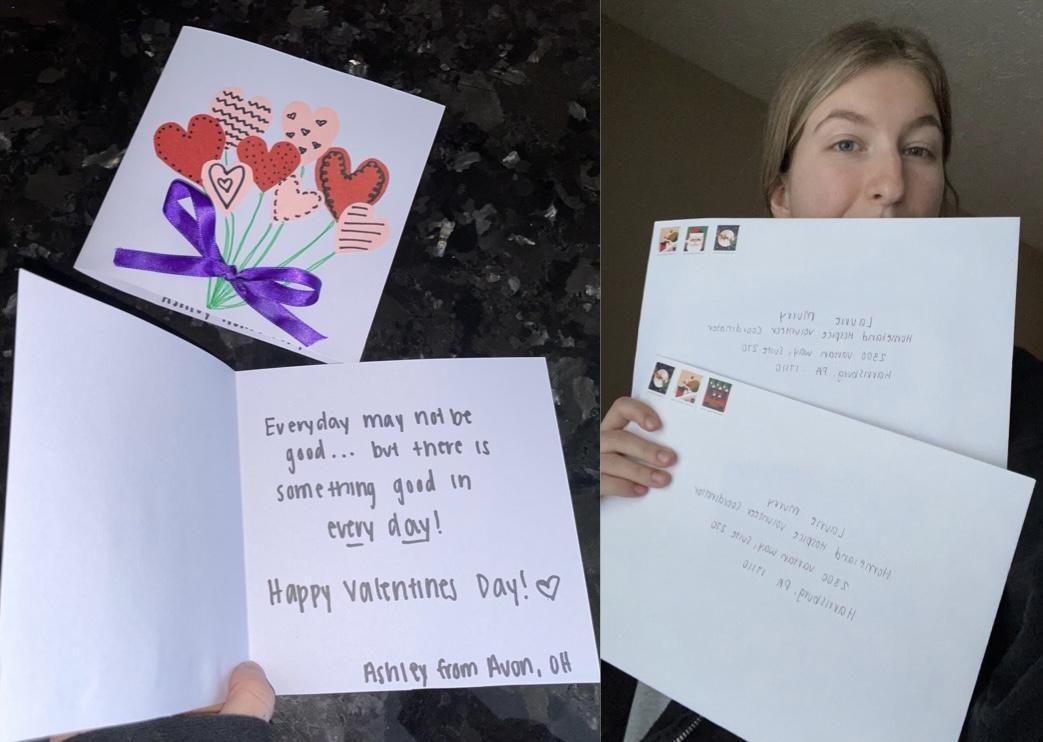 Everyday may not be
good... but there is
something good in
every day!
Happy Valentines Day! ♡
Ashley from Avon, OH
Laurie Murry
Homeland Hospice Volunteer Coordinator
2300 Vartan Way, Suite 270
Harrisburg, PA 17110
Laurie Murry
Homeland Hospice Volunteer Coordinator
2300 Vartan Way, Suite 270
Harrisburg, PA 17110